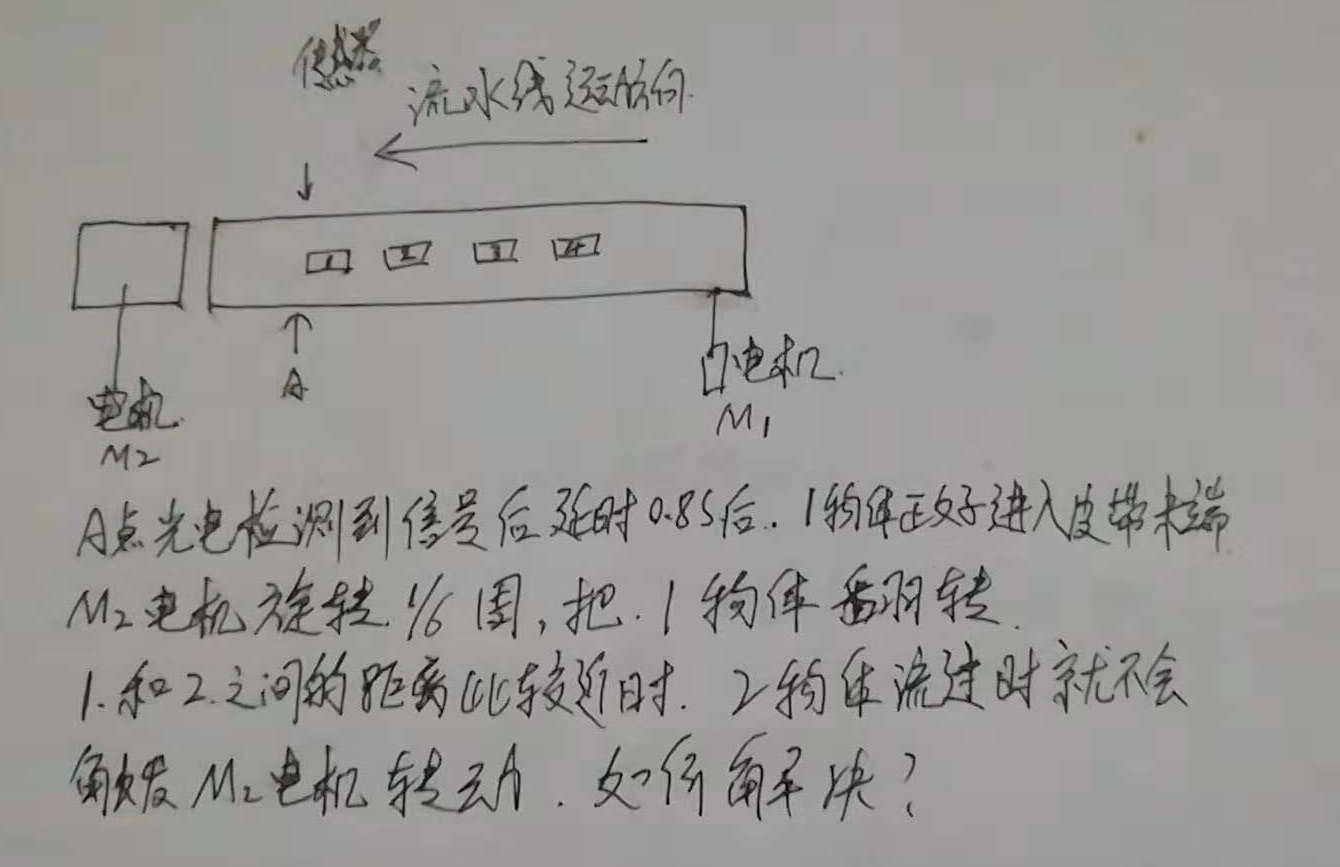 传感器
流水线运动方向.
1 2 3 4
电机
M2
A
电机.
M1
A点光电检测到信号后延时0.8S后. 1物体正好进入皮带末端
M2电机旋转1/6周,把.1物体翻转.
1.和2.之间的距离比较近时. 2物体流过时就不会
触发M2电机转动.如何解决?